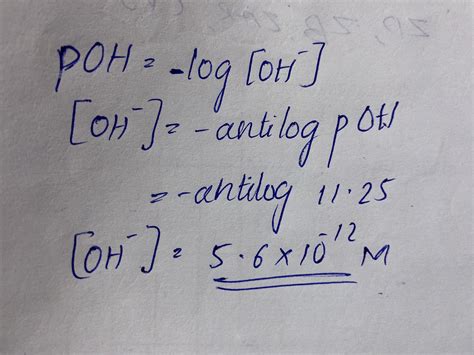 pOH = -log [OH⁻]
[OH⁻] = -antilog pOH
= -antilog 11.25
[OH⁻] = 5.6×10⁻¹² M